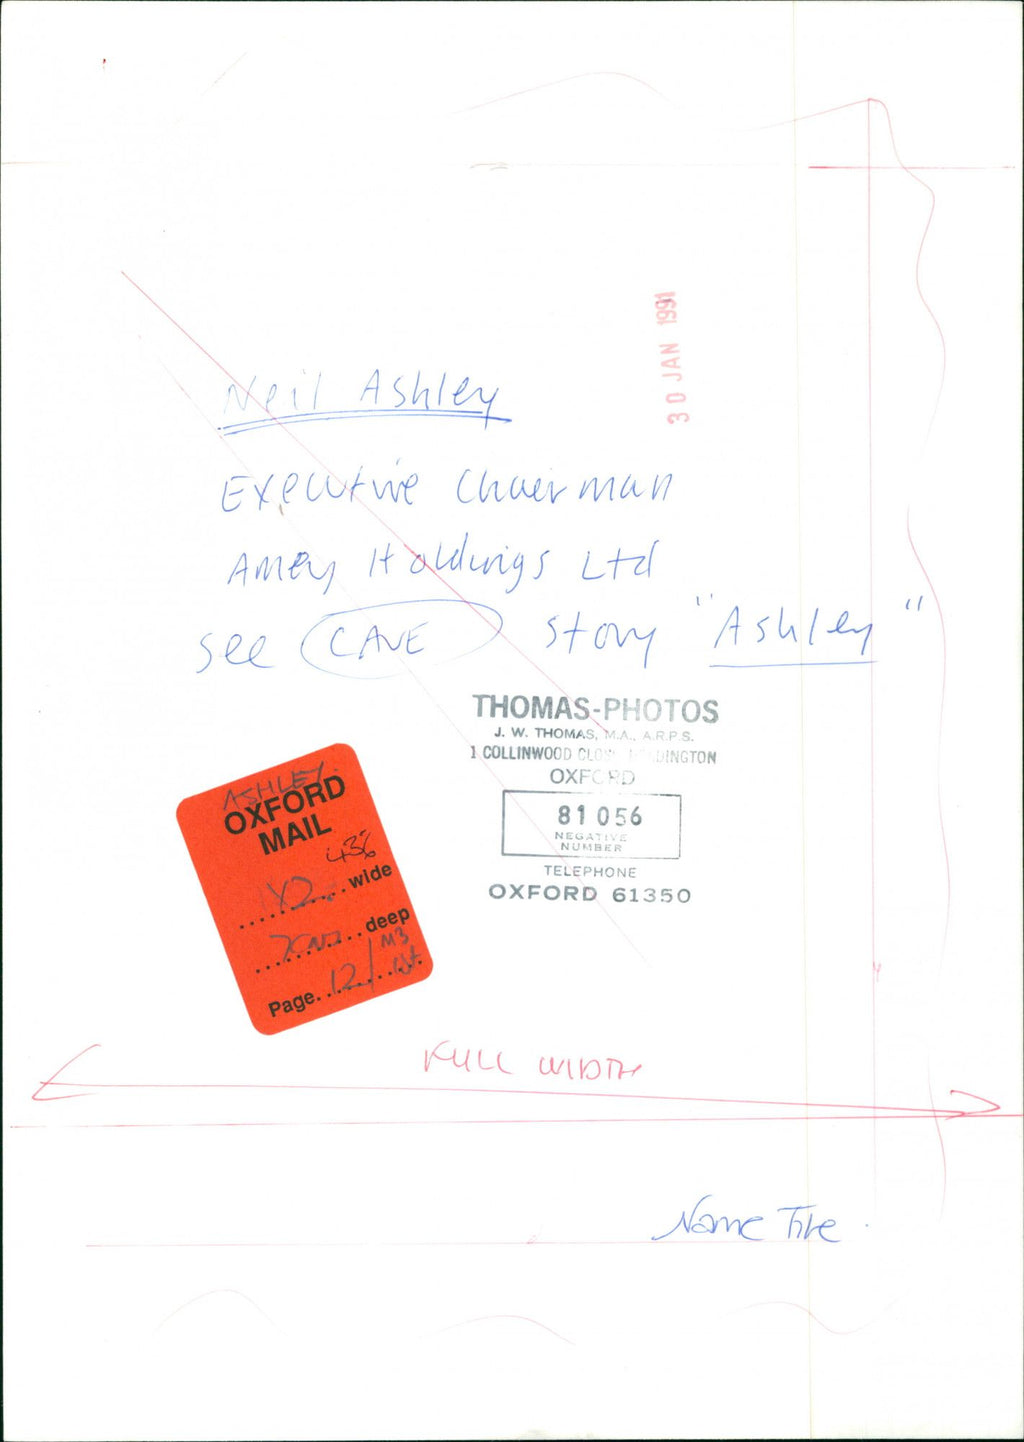 30 JAN 1991
Neil Ashley
Executive Chairman
Amey Holdings Ltd
See CAVE story "Ashley"
THOMAS-PHOTOS
J. W. THOMAS, M.A., A.R.P.S.
1 COLLINWOOD CLOSE HEADINGTON
OXFORD
81 056
NEGATIVE
NUMBER
TELEPHONE
OXFORD 61350
ASHLEY
OXFORD
MAIL
43%
.....wide
.....deep
M3
Page. 12
FULL WIDTH
Name